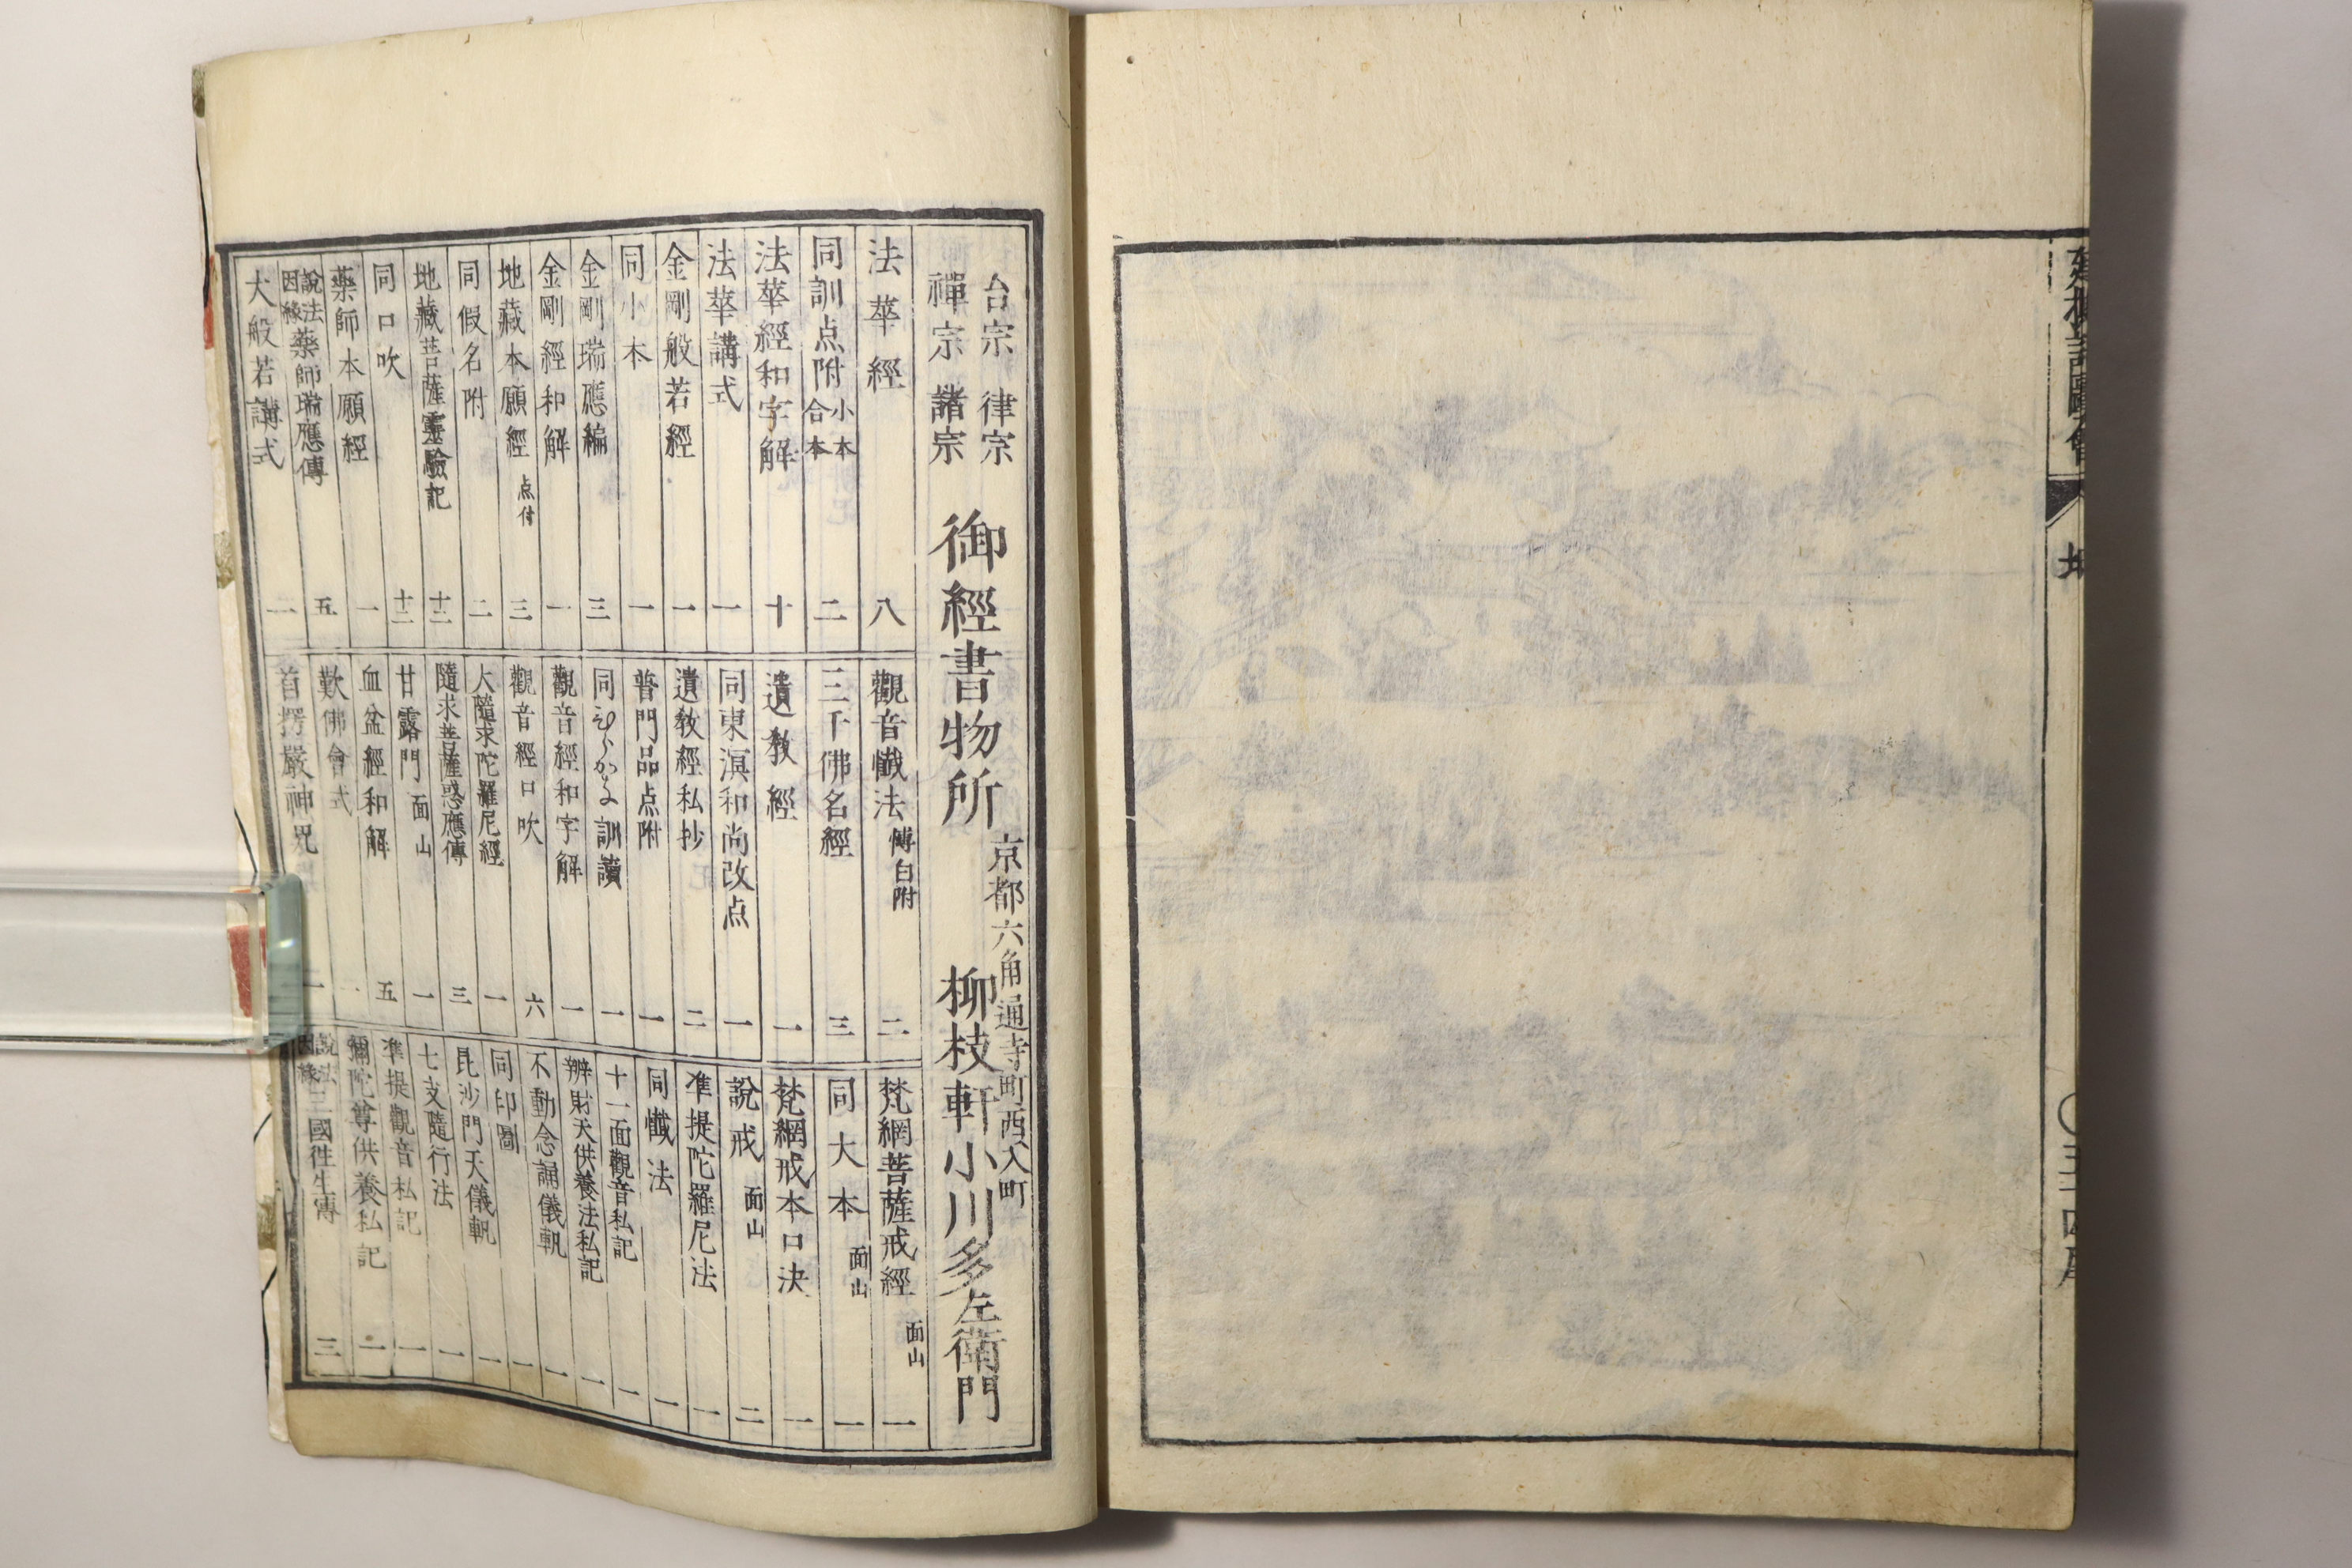 台宗 律宗
禪宗 諸宗
御經書物所
京都六角通寺町西入町
柳枝軒小川多左衛門
法華經 八
同訓点附 小本合本 二
法華經和字解 十
法華講式 一
金剛般若經 一
同小本 一
金剛瑞應編 三
金剛經和解 一
地藏本願經 点付 三
同假名附 二
地藏菩薩靈驗記 十二
同口吹 十二
藥師本願經 一
說法因縁藥師瑞應傳 五
大般若講式 一
觀音懺法 博白附 二
三千佛名經 三
遺教經 一
同東溟和尚改点 一
遺教經私抄 二
普門品点附 一
同ひらかな訓讀 一
觀音經和字解 一
觀音經口吹 六
大隨求陀羅尼經 一
隨求菩薩惑應傳 三
甘露門 面山 一
血盆經和解 五
歎佛會式 一
首楞嚴神咒 一
梵網菩薩戒經 面山 一
同大本 面山 一
梵網戒本口決 一
說戒 面山 二
準提陀羅尼法 一
同懺法 一
十一面觀音私記 一
辨財天供養法私記 一
不動念誦儀軌 一
同印圖 一
毘沙門天儀軌 一
七支隨行法 一
準提觀音私記 一
彌陀尊供養私記 一
說法因縁三國徃生傳 三